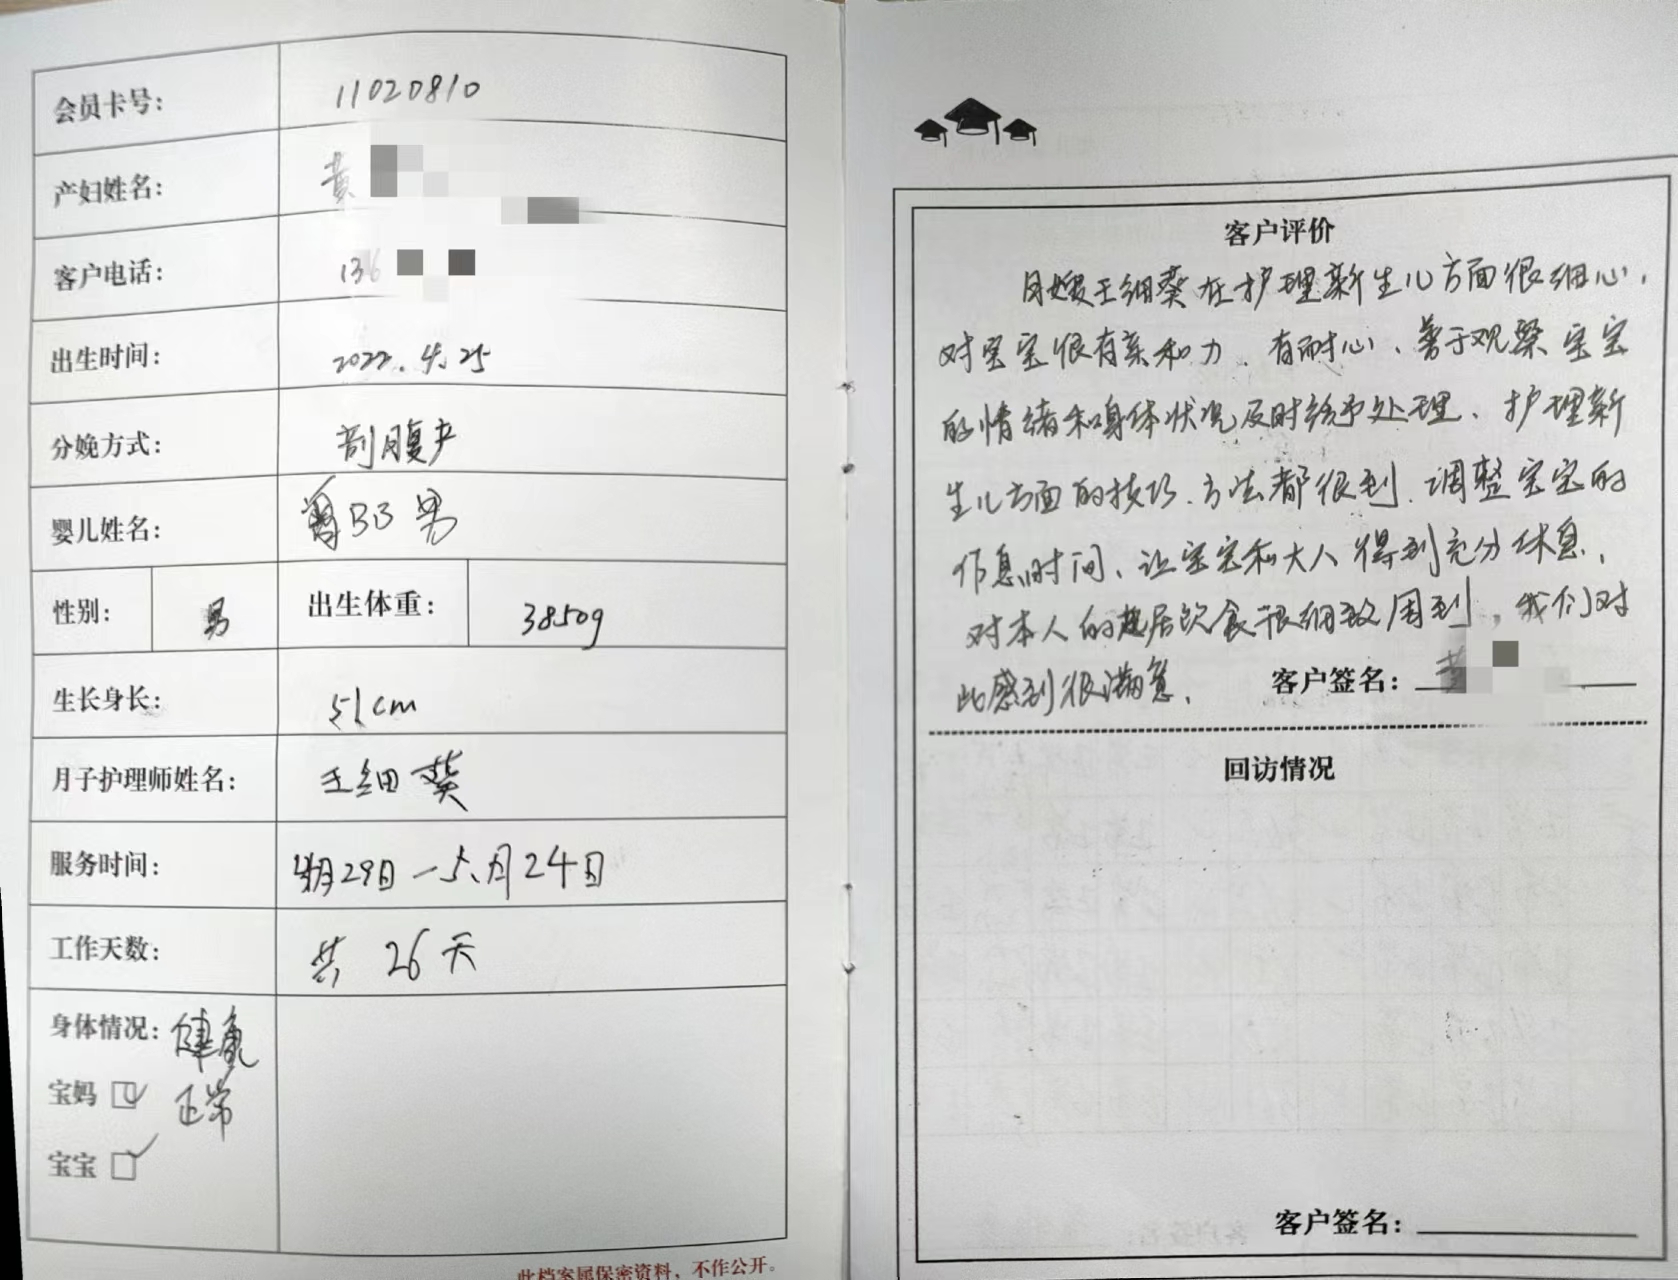 会员卡号: 11020810
产妇姓名: 黄
客户电话: 136
出生时间: 2022.4.25
分娩方式: 剖腹产
婴儿姓名: 曾BB 男
性别: 男 出生体重: 3850g
生长身长: 51cm
月子护理师姓名: 王细葵
服务时间: 4月29日-5月24日
工作天数: 共 26天
身体情况: 健康
宝妈 正常
宝宝
此档案属保密资料，不作公开。
客户评价
月嫂王细葵在护理新生儿方面很细心,
对宝宝很有亲和力、有耐心、善于观察宝宝
的情绪和身体状况及时给予处理、护理新
生儿方面的技巧、方法都很到、调整宝宝的
作息时间、让宝宝和大人得到充分休息,
对本人的起居饮食很细致周到，我们对
此感到很满意、
客户签名: 黄
回访情况
客户签名: